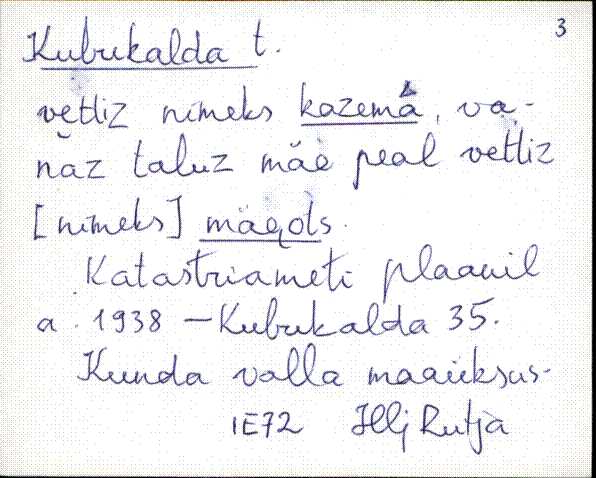 3
Kubukalda t.
vettiz nimeks kazemä, va-
naz taluz mäe peal vettiz
[nimeks] mäeots.
Katastriameti plaanil
a. 1938 – Kubukalda 35.
Kunda valla maaüksus.
IE72 Illj Rutja